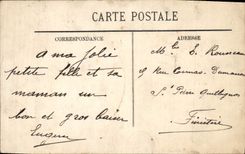 CARTE POSTALE
CORRESPONDANCE
a ma jolie
petite fille et sa
maman un
bon et gros baiser
Eugène
ADRESSE
Mlle E. Rousseau
9 Rue
St Pierre Quilbignon
Finistère